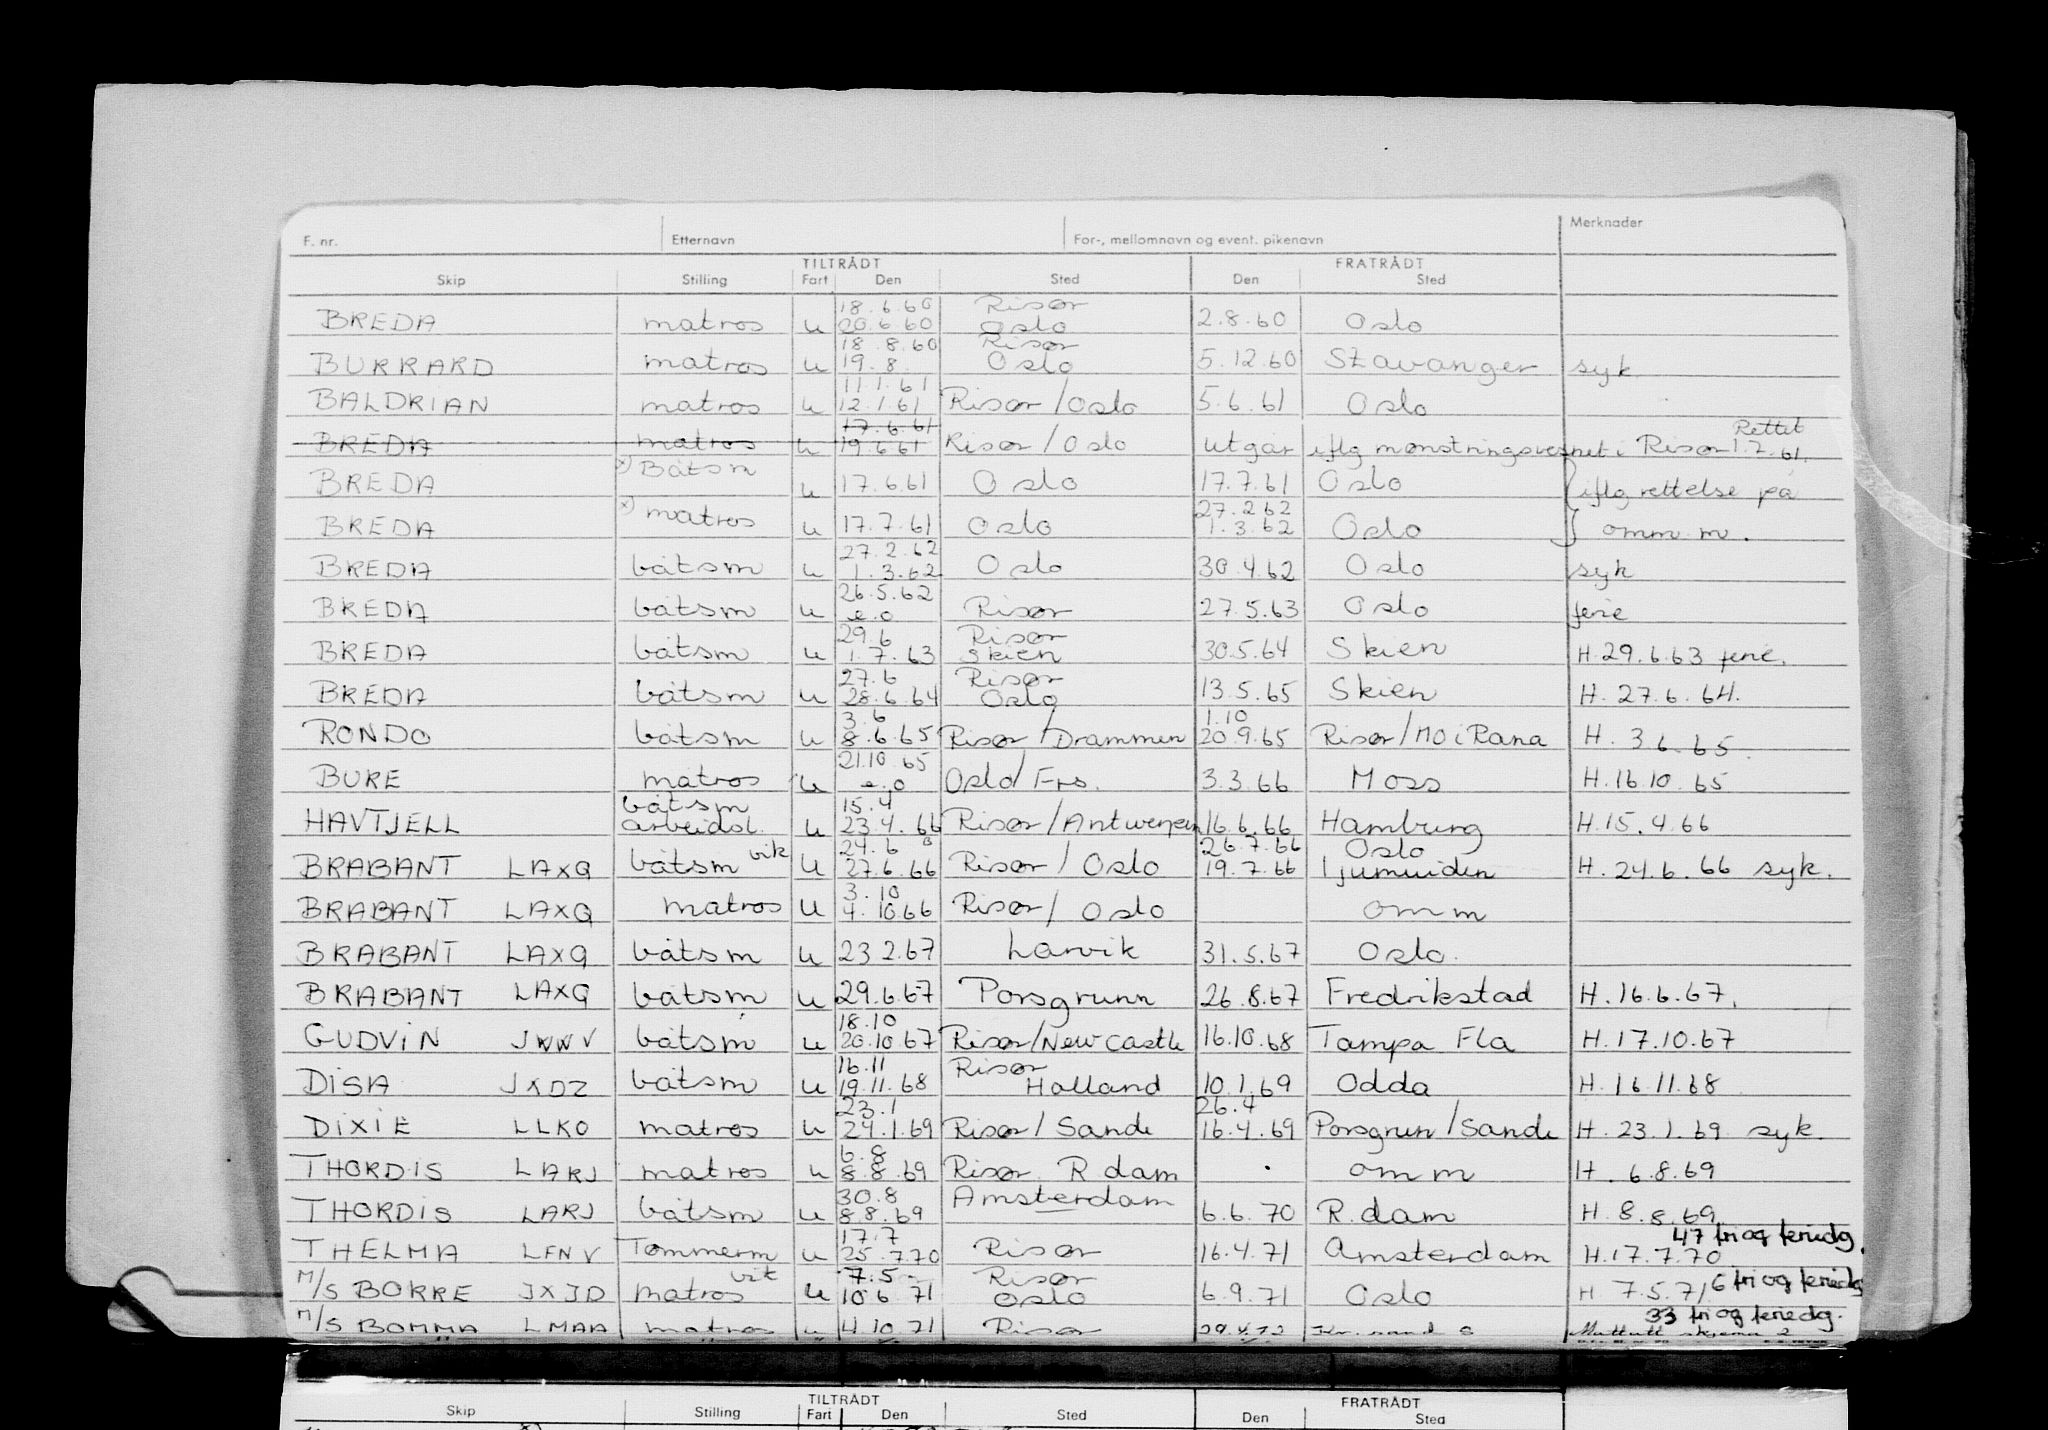 F. nr. Etternavn For-, mellomnavn og event. pikenavn Merknader
TILTRÅDT FRATRÅDT
Skip Stilling Fart Den Sted Den Sted
18.6.60 Risør
BREDA matros u 20.6.60 Oslo 2.8.60 Oslo
18.8.60 Risør
BURRARD matros u 19.8 Oslo 5.12.60 Stavanger syk
11.1.61
BALDRIAN matros u 12.1.61 Risør/Oslo 5.6.61 Oslo
17.6.61 Rettet
BREDA matros u 19.6.61 Risør/Oslo utgår iflg mønstringsvesnet i Risør 1.7.61.
x) Båtsm
BREDA u 17.6.61 Oslo 17.7.61 Oslo iflg rettelse på
x) matros 27.2.62
BREDA u 17.7.61 Oslo 1.3.62 Oslo omm m.
27.2.62
BREDA båtsm u 1.3.62 Oslo 30.4.62 Oslo syk
26.5.62
BREDA båtsm u e.o Risør 27.5.63 Oslo ferie
29.6 Risør
BREDA båtsm u 1.7.63 Skien 30.5.64 Skien H.29.6.63 ferie.
27.6 Risør
BREDA båtsm u 28.6.64 Oslo 13.5.65 Skien H. 27.6.64.
3.6 1.10
RONDO båtsm u 8.6.65 Risør/Drammen 20.9.65 Risør/Mo i Rana H. 3 6.65.
21.10 65
BURE matros u e.o Oslo/Frs. 3.3.66 Moss H.16.10.65
båtsm 15.4
HAVTJELL arbeidsl. u 23.4.66 Risør/Antwerpen 16.6.66 Hamburg H.15.4.66
vik 24.6 26.7.66 Oslo
BRABANT LAXQ båtsm u 27.6.66 Risør/Oslo 19.7.66 Ijumuiden H.24.6.66 syk.
3.10
BRABANT LAXQ matros u 4.10.66 Risør/Oslo omm
BRABANT LAXQ båtsm u 23 2.67 Larvik 31.5.67 Oslo.
BRABANT LAXQ båtsm u 29.6.67 Porsgrunn 26.8.67 Fredrikstad H.16.6.67.
18.10
GUDVIN JWWV båtsm u 20.10.67 Risør/Newcastle 16.10.68 Tampa Fla H.17.10.67
16.11 Risør
DISA JXDZ båtsm u 19.11.68 Holland 10.1.69 Odda H.16.11.68
23.1 26.4
DIXIE LLKO matros u 24.1.69 Risør/Sande 16.4.69 Porsgrun/Sande H. 23.1.69 syk.
6.8
THORDIS LARJ matros u 8.8.69 Risør R dam omm H. 6.8.69
30.8 Amsterdam
THORDIS LARJ båtsm u 8.8.69 6.6.70 R.dam H. 8.8.69
17.7 47 fri og feriedg.
THELMA LFNV Tømmerm u 25.7.70 Risør 16.4.71 Amsterdam H.17.7.70
vik 7.5 Risør 6 fri og feriedg
M/S BORRE JXJD matros u 10.6 71 Oslo 6.9.71 Oslo H 7.5.71
33 fri og feriedg.
M/S BOMMA LMAA matros u 4.10.71 Risør 29.4.72 Kr.sand S skjema 2
TILTRÅDT FRATRÅDT
Skip Stilling Fart Den Sted Den Sted